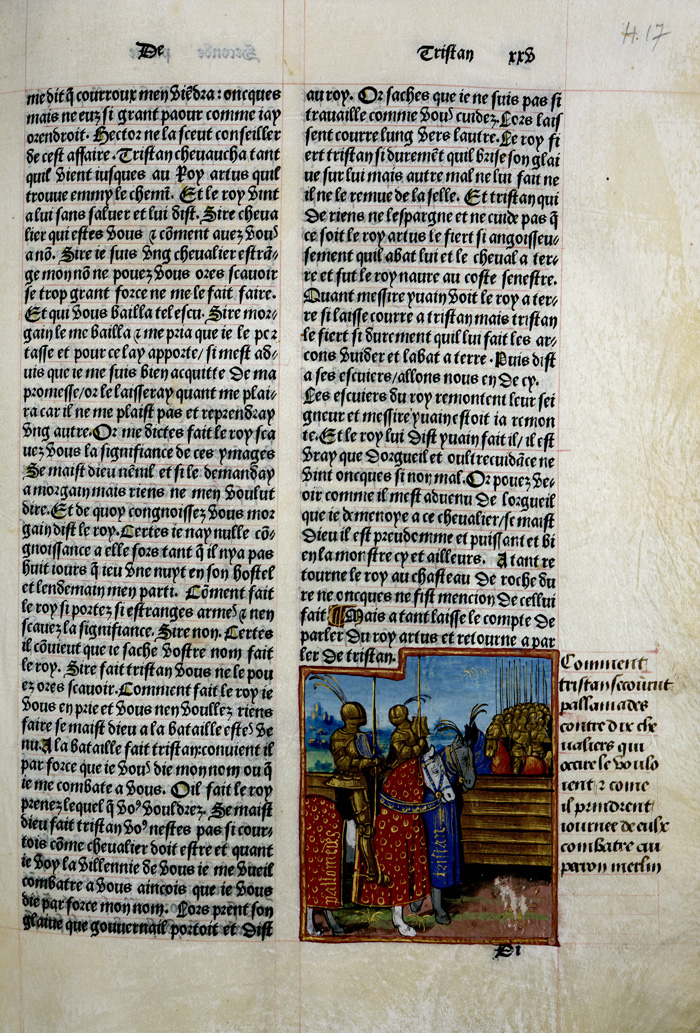 H. 17
De
Tristan xxv
me dit q̃ courroux men viẽdra: oncques
mais ne euz si grant paour comme iay
orendroit. Hector ne la sceut conseiller
de cest affaire. Tristan cheuaucha tant
quil vient iusques au Roy artus quil
trouue emmy le chemĩ. Et le roy vint
a lui sans saluer et lui dist. Sire cheua
lier qui estes vous ⁊ cõment auez vouˀ
a nõ. Sire ie suis vng cheualier estrã/
ge mon nõ ne pouez vous ores scauoir
se trop grant force ne me le fait faire.
Et qui vous bailla tel escu. Sire mor/
gain le me bailla ⁊ me pria que ie le por
tasse et pour ce lay apporte/ si mest ad/
uis que ie me suis bien acquitte de ma
promesse/or le laisseray quant me plai/
ra car il ne me plaist pas et reprendray
vng autre. Or me dictes fait le roy sca
uez vous la signifiance de ces ymages
Se maist dieu nẽnil et si le demanday
a morgain mais riens ne men voulut
dire. Et de quoy congnoissez vous mor
gain dist le roy. Certes ie nay nulle cõ/
gnoissance a elle fors tant q̃ il nya pas
huit iours q̃ ieu vne nuyt en son hostel
et lendemain men parti. Cõment fait
le roy si portez si estranges armeˀ ⁊ nen
scauez la signifiance. Sire non. Certes
il cõuient que ie sache vostre nom fait
le roy. Sire fait tristan vous ne le pou
ez ores scauoir. Comment fait le roy ie
vous en prie et vous nen voullez riens
faire se maist dieu a la bataille esteˀ ve
nu. A la bataille fait tristan: conuient il
par force que ie vouˀ die mon nom ou q̃
ie me combate a vous. Oil fait le roy
prenez lequel q̃ voˀ vouldrez. Se maist
dieu fait tristan voˀ nestes pas si cour/
tois cõme cheualier doit estre et quant
ie voy la villennie de vous ie me vueil
combatre a vous aincois que ie vous
die par force mon nom. Lors prent son
glaiue que gouuernail portoit et dist
au roy. Or saches que ie ne suis pas si
trauaille comme vouˀ cuidez. Lors lais
sent courre lung vers lautre. Le roy fi
ert tristan si duremẽt quil brise son glai
ue sur lui mais autre mal ne lui fait ne
il ne le remue de la selle. Et tristan qui
de riens ne lespargne et ne cuide pas q̃
ce soit le roy artus le fiert si angoisseu/
sement quil abat lui et le cheual a ter/
re et fut le roy naure au coste senestre.
Quant messire yuain voit le roy a ter/
re si laisse courre a tristan mais tristan
le fiert si durement quil lui fait les ar/
cons vuider et labat a terre. Puis dist
a ses escuiers/allons nous en de cy.
Les escuiers du roy remontent leur sei
gneur et messire yuain estoit ia remon
te. Et le roy lui dist yuain fait il/ il est
vray que dorgueil et oultrecuidãce ne
vint oncques si non mal. Or pouez ve/
oir comme il mest aduenu de lorgueil
que ie demenoye a ce cheualier/se maist
dieu il est preudomme et puissant et bi
en la monstre cy et ailleurs. A tant re
tourne le roy au chasteau de roche du
re ne oncques ne fist mencion de cellui
fait. Mais a tant laisse le compte de
parler du roy artus et retourne a par
ler de tristan.
Comment
tristan secourut
pallamades
contre dix che
ualiers qui
occire le voulo
ient ⁊ come
il prindrent
iournee de eulx
combatre au
peron merlin
pallomides
tristan
Di